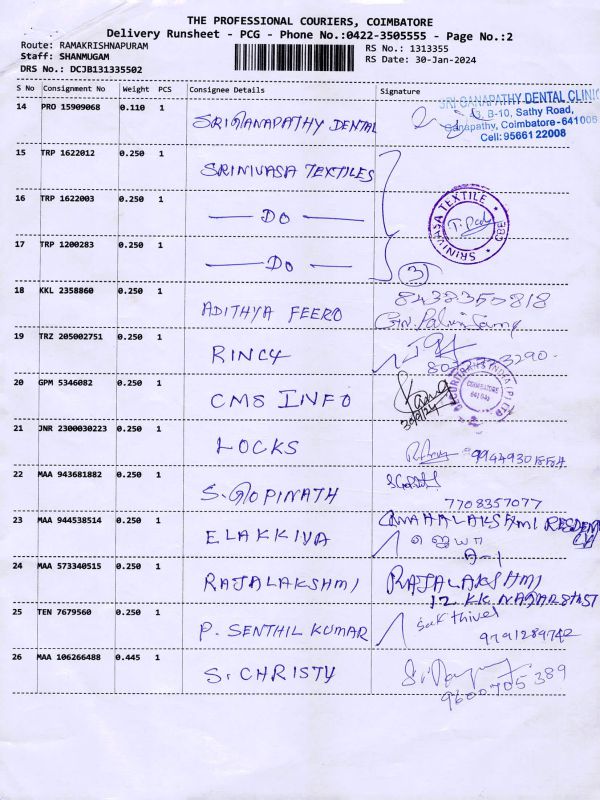 THE PROFESSIONAL COURIERS, COIMBATORE
Delivery Runsheet - PCG - Phone No.:0422-3505555 - Page No.:2
Route: RAMAKRISHNAPURAM RS No.: 1313355
Staff: SHANMUGAM RS Date: 30-Jan-2024
DRS No.: DCJB131335502
S No Consignment No Weight PCS Consignee Details Signature
14 PRO 15909068 0.110 1 SRI GANAPATHY DENTAL
SRI GANAPATHY DENTAL CLINIC
B-10, Sathy Road,
Ganapathy, Coimbatore-641006
Cell: 95661 22008
15 TRP 1622012 0.250 1 SRINIVASA TEXTILES
16 TRP 1622003 0.250 1 DO
SRINIVASA TEXTILE CBE
17 TRP 1200283 0.250 1 DO 3
18 KKL 2358860 0.250 1 ADITHYA FEERO 8433350818
19 TRZ 205002751 0.250 1 RINCY 3290
20 GPM 5346082 0.250 1 CMS INFO
COIMBATORE
21 JNR 2300030223 0.250 1 LOCKS
22 MAA 943681882 0.250 1 S. GOPINATH 7708357077
23 MAA 944538514 0.250 1 ELAKKIYA MAHALAKSHMI
ஜெயா
A-1
24 MAA 573340515 0.250 1 RAJALAKSHMI RAJALAKSHMI
12 KK NAGAR
25 TEN 7679560 0.250 1 P. SENTHIL KUMAR Sakthivel
9791289742
26 MAA 106266488 0.445 1 S. CHRISTY
9600705389